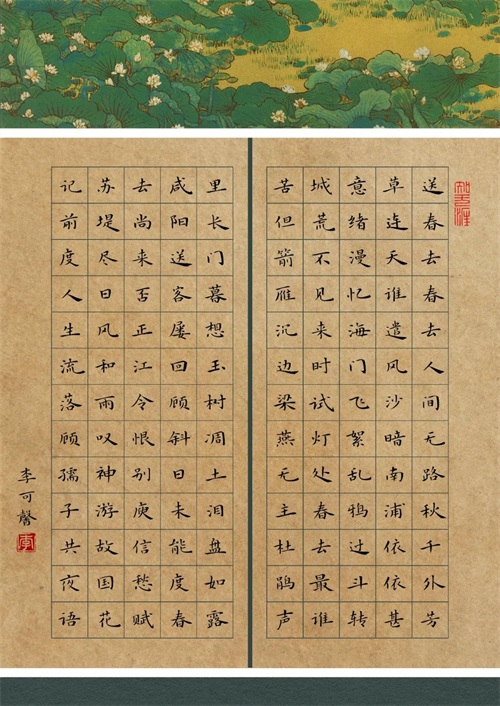 送春去春去人间无路秋千外芳
草连天谁遣风沙暗南浦依依甚
意绪漫忆海门飞絮乱鸦过斗转
城荒不见来时试灯处春去最谁
苦但箭雁沉边梁燕无主杜鹃声
里长门暮想玉树凋土泪盘如露
咸阳送客屡回顾斜日未能度春
去尚来否正江令恨别庾信愁赋
苏堤尽日风和雨叹神游故国花
记前度人生流落顾孺子共夜语
李可馨
李